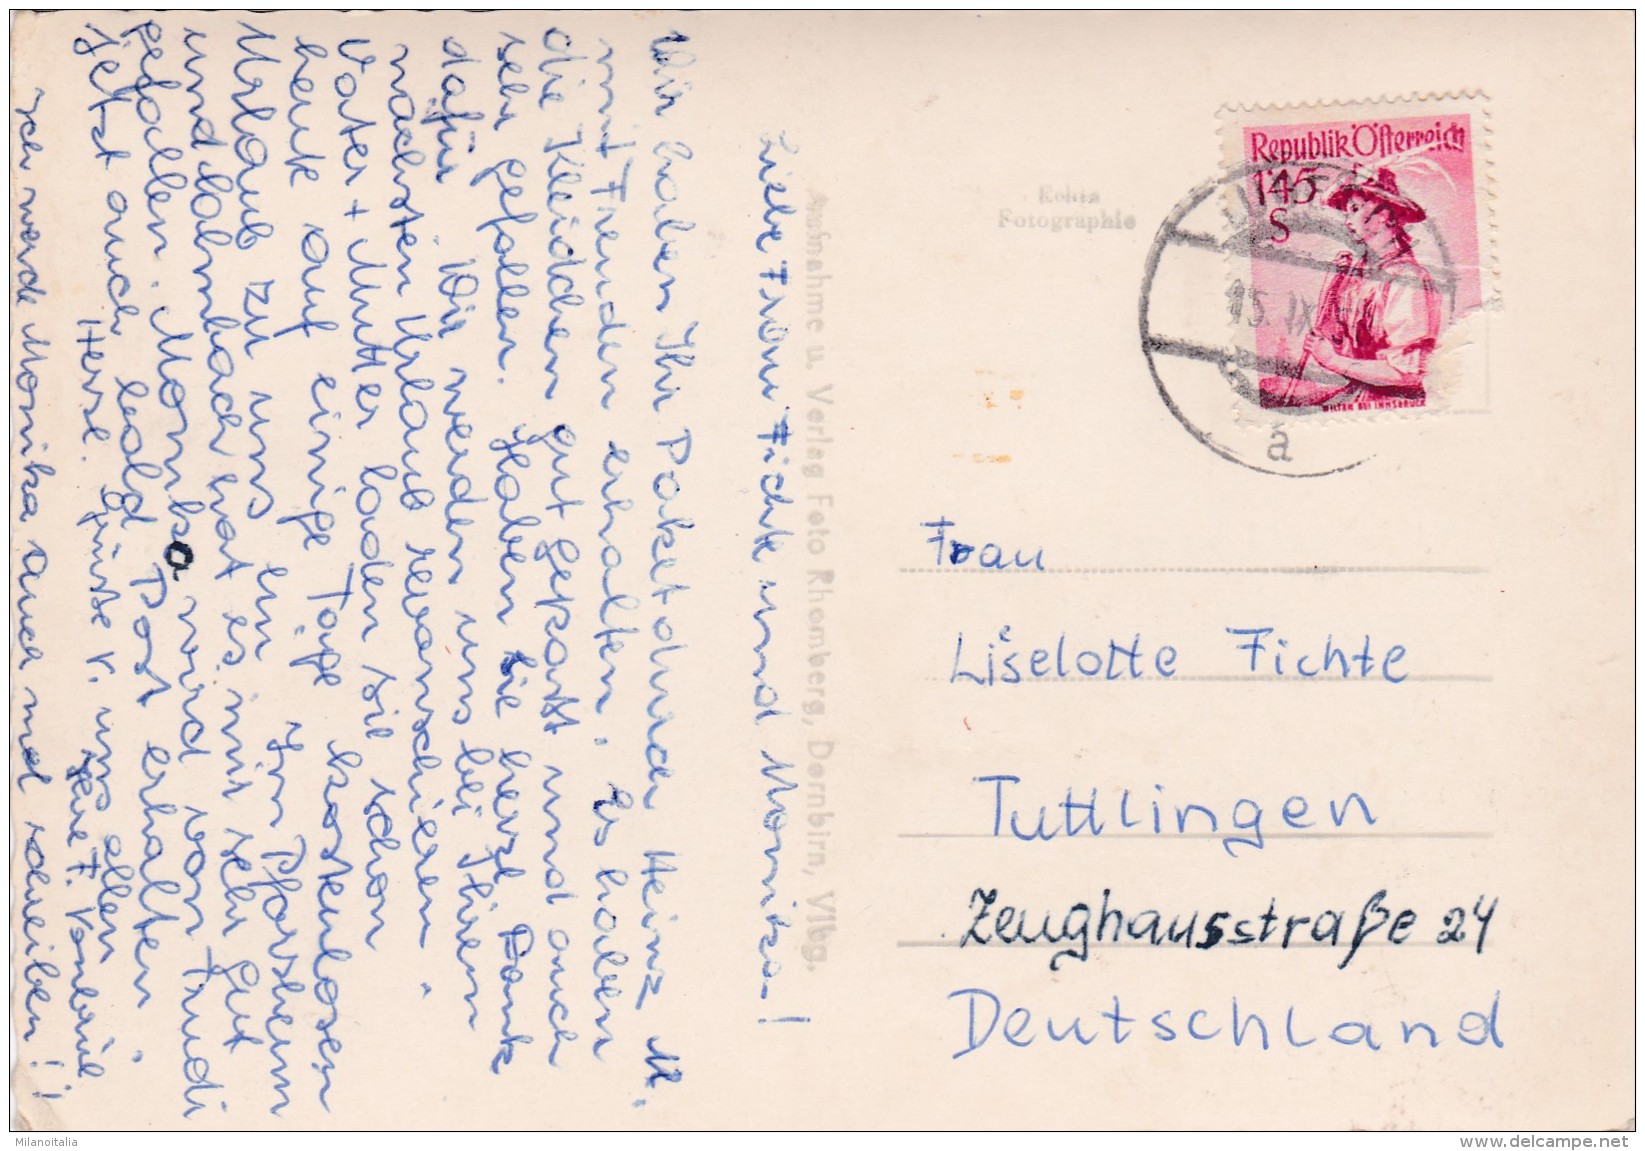 Liebe Frau Fichte und Monika!
Wir haben Ihr Paket durch Heinz M.
mit Freuden erhalten. Es haben
die Kleidchen gut gepasst und auch
sehr gefallen. Haben Sie herzl Dank
dafür. Wir werden uns bei Ihrem
nächsten Urlaub revanschieren.
Vater + Mutter laden sie schon
heute auf einige Tage kostenlosen
Urlaub zu uns ein. Im Pforzheim
und hat es mir sehr gut
gefallen. Monika wird von Trudi
jetzt auch bald Post erhalten.
Herzl. Grüsse v. uns allen
Ihre F.
Ich werde Monika auch mal schreiben!!
Aufnahme u. Verlag Foto Rhomberg, Dornbirn, Vlbg.
Echte
Fotographie
Republik Österreich
1'45
S
WILTEN BEI INNSBRUCK
15. IX. 5
a
Frau
Liselotte Fichte
Tuttlingen
Zeughausstraße 24
Deutschland
Milanoitalia